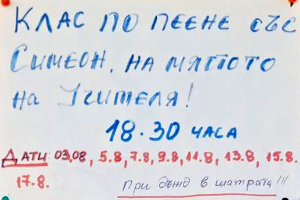 КЛАС ПО ПЕЕНЕ СЪС
СИМЕОН, НА МЯТОТО
НА УЧИТЕЛЯ!
18.30 ЧАСА
ДАТИ: 03.08, 5.8, 7.8, 9.8, 11.8, 13.8, 15.8.
17.8.
ПРИ ДЪЖД В ШАТРАТА!!!